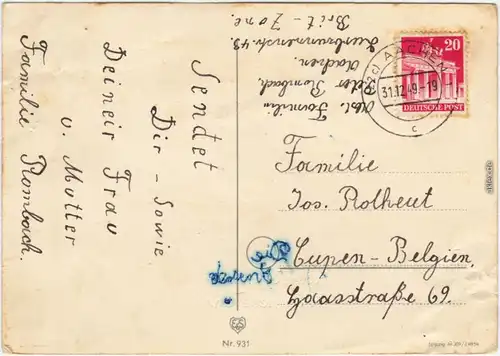 Sendet
Dir - Sowie
Deiner Frau
u. Mutter
Familie Rombach.
Abst. Familie
Peter Rombach,
Aachen.
Brit - Zone.
20
DEUTSCHE POST
(22c) AACHEN
31.12.49.-19
c
Familie
Jos. Rotheut
Eupen - Belgien,
Haasstraße 69.
Nr. 931